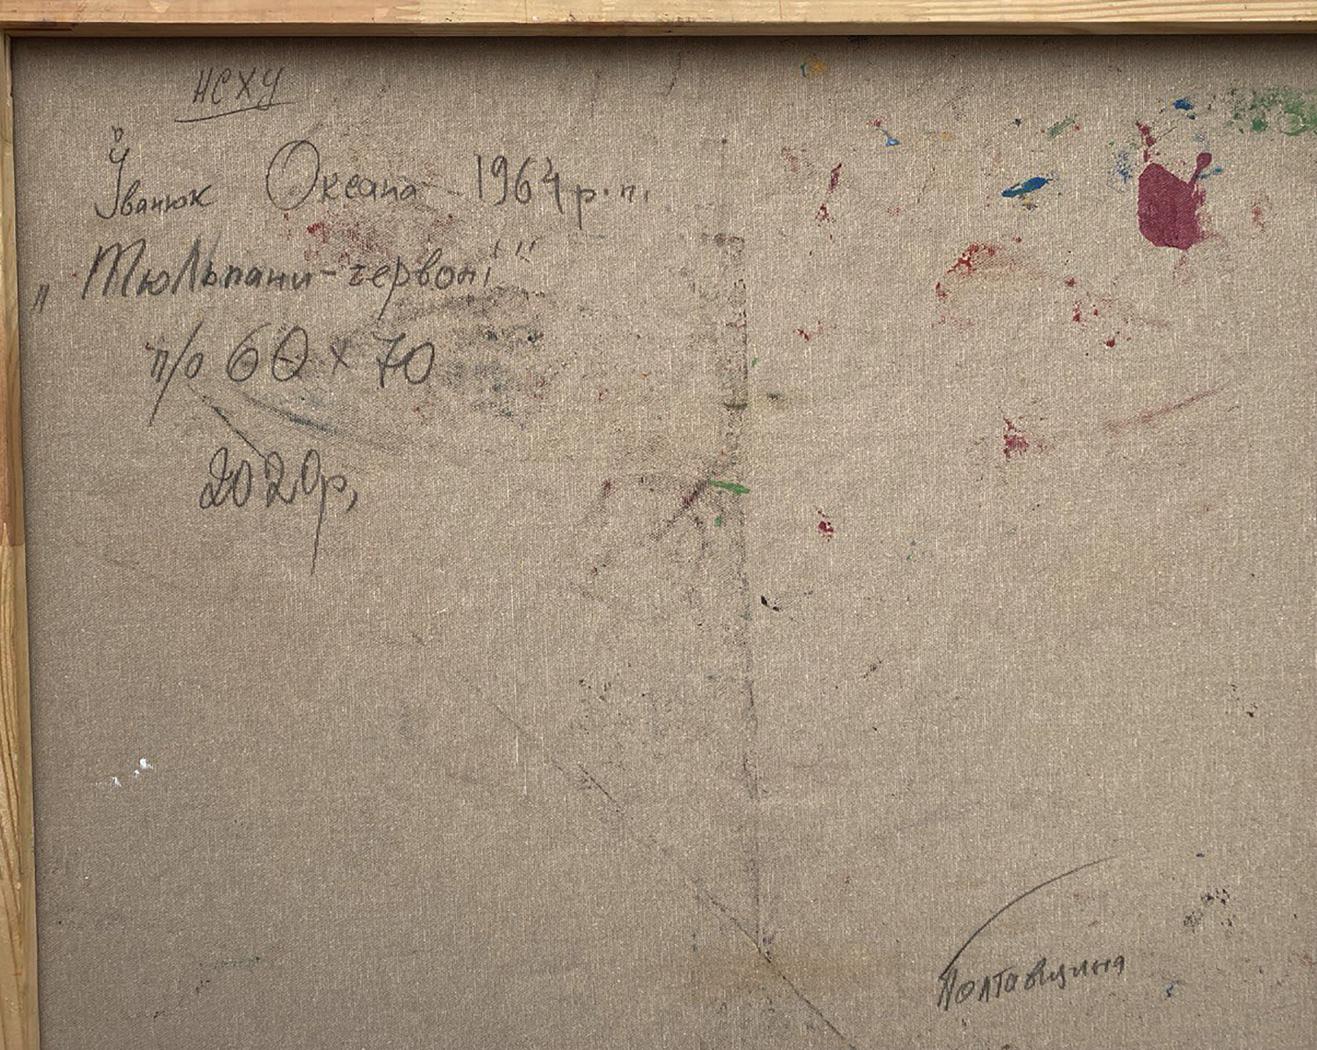 НСХУ
Іванюк Оксана 1964 р.н.
„Тюльпани-червоні"
п/о 60 х 70
2020р,
Полтавщина